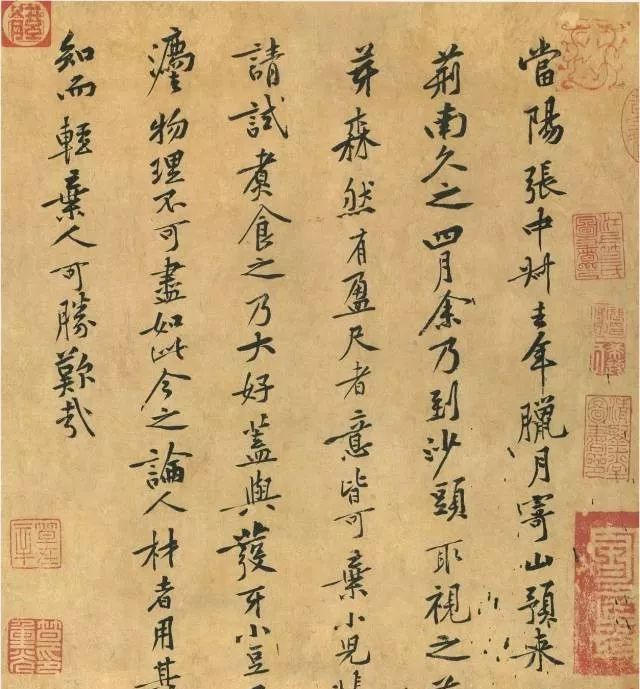 當陽張中叔去年臘月寄山預来
荊南久之四月余乃到沙頭取視之
芽森然有盈尺者意皆可棄小兒
請試煮食之乃大好蓋與發牙小豆
灋物理不可盡如此今之論人材者用其
知而輕棄人可勝歎哉